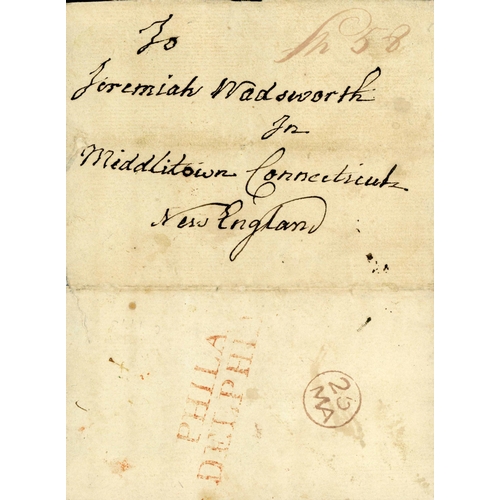 To
Sh 5 8
Jeremiah Wadsworth
In
Middlitown Connecticut
New England
PHILA
DELPHI
26
MA